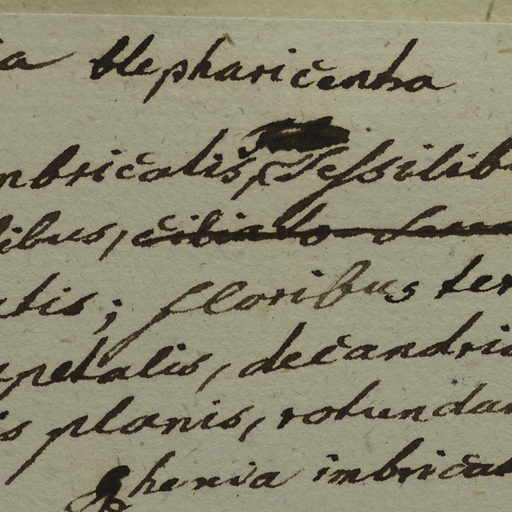 ia blepharicentra
mbricatis, sessilibu
libus, ciliato den
atis; floribus ter
petalis, decandri
is planis, rotundat
Gherua imbricat